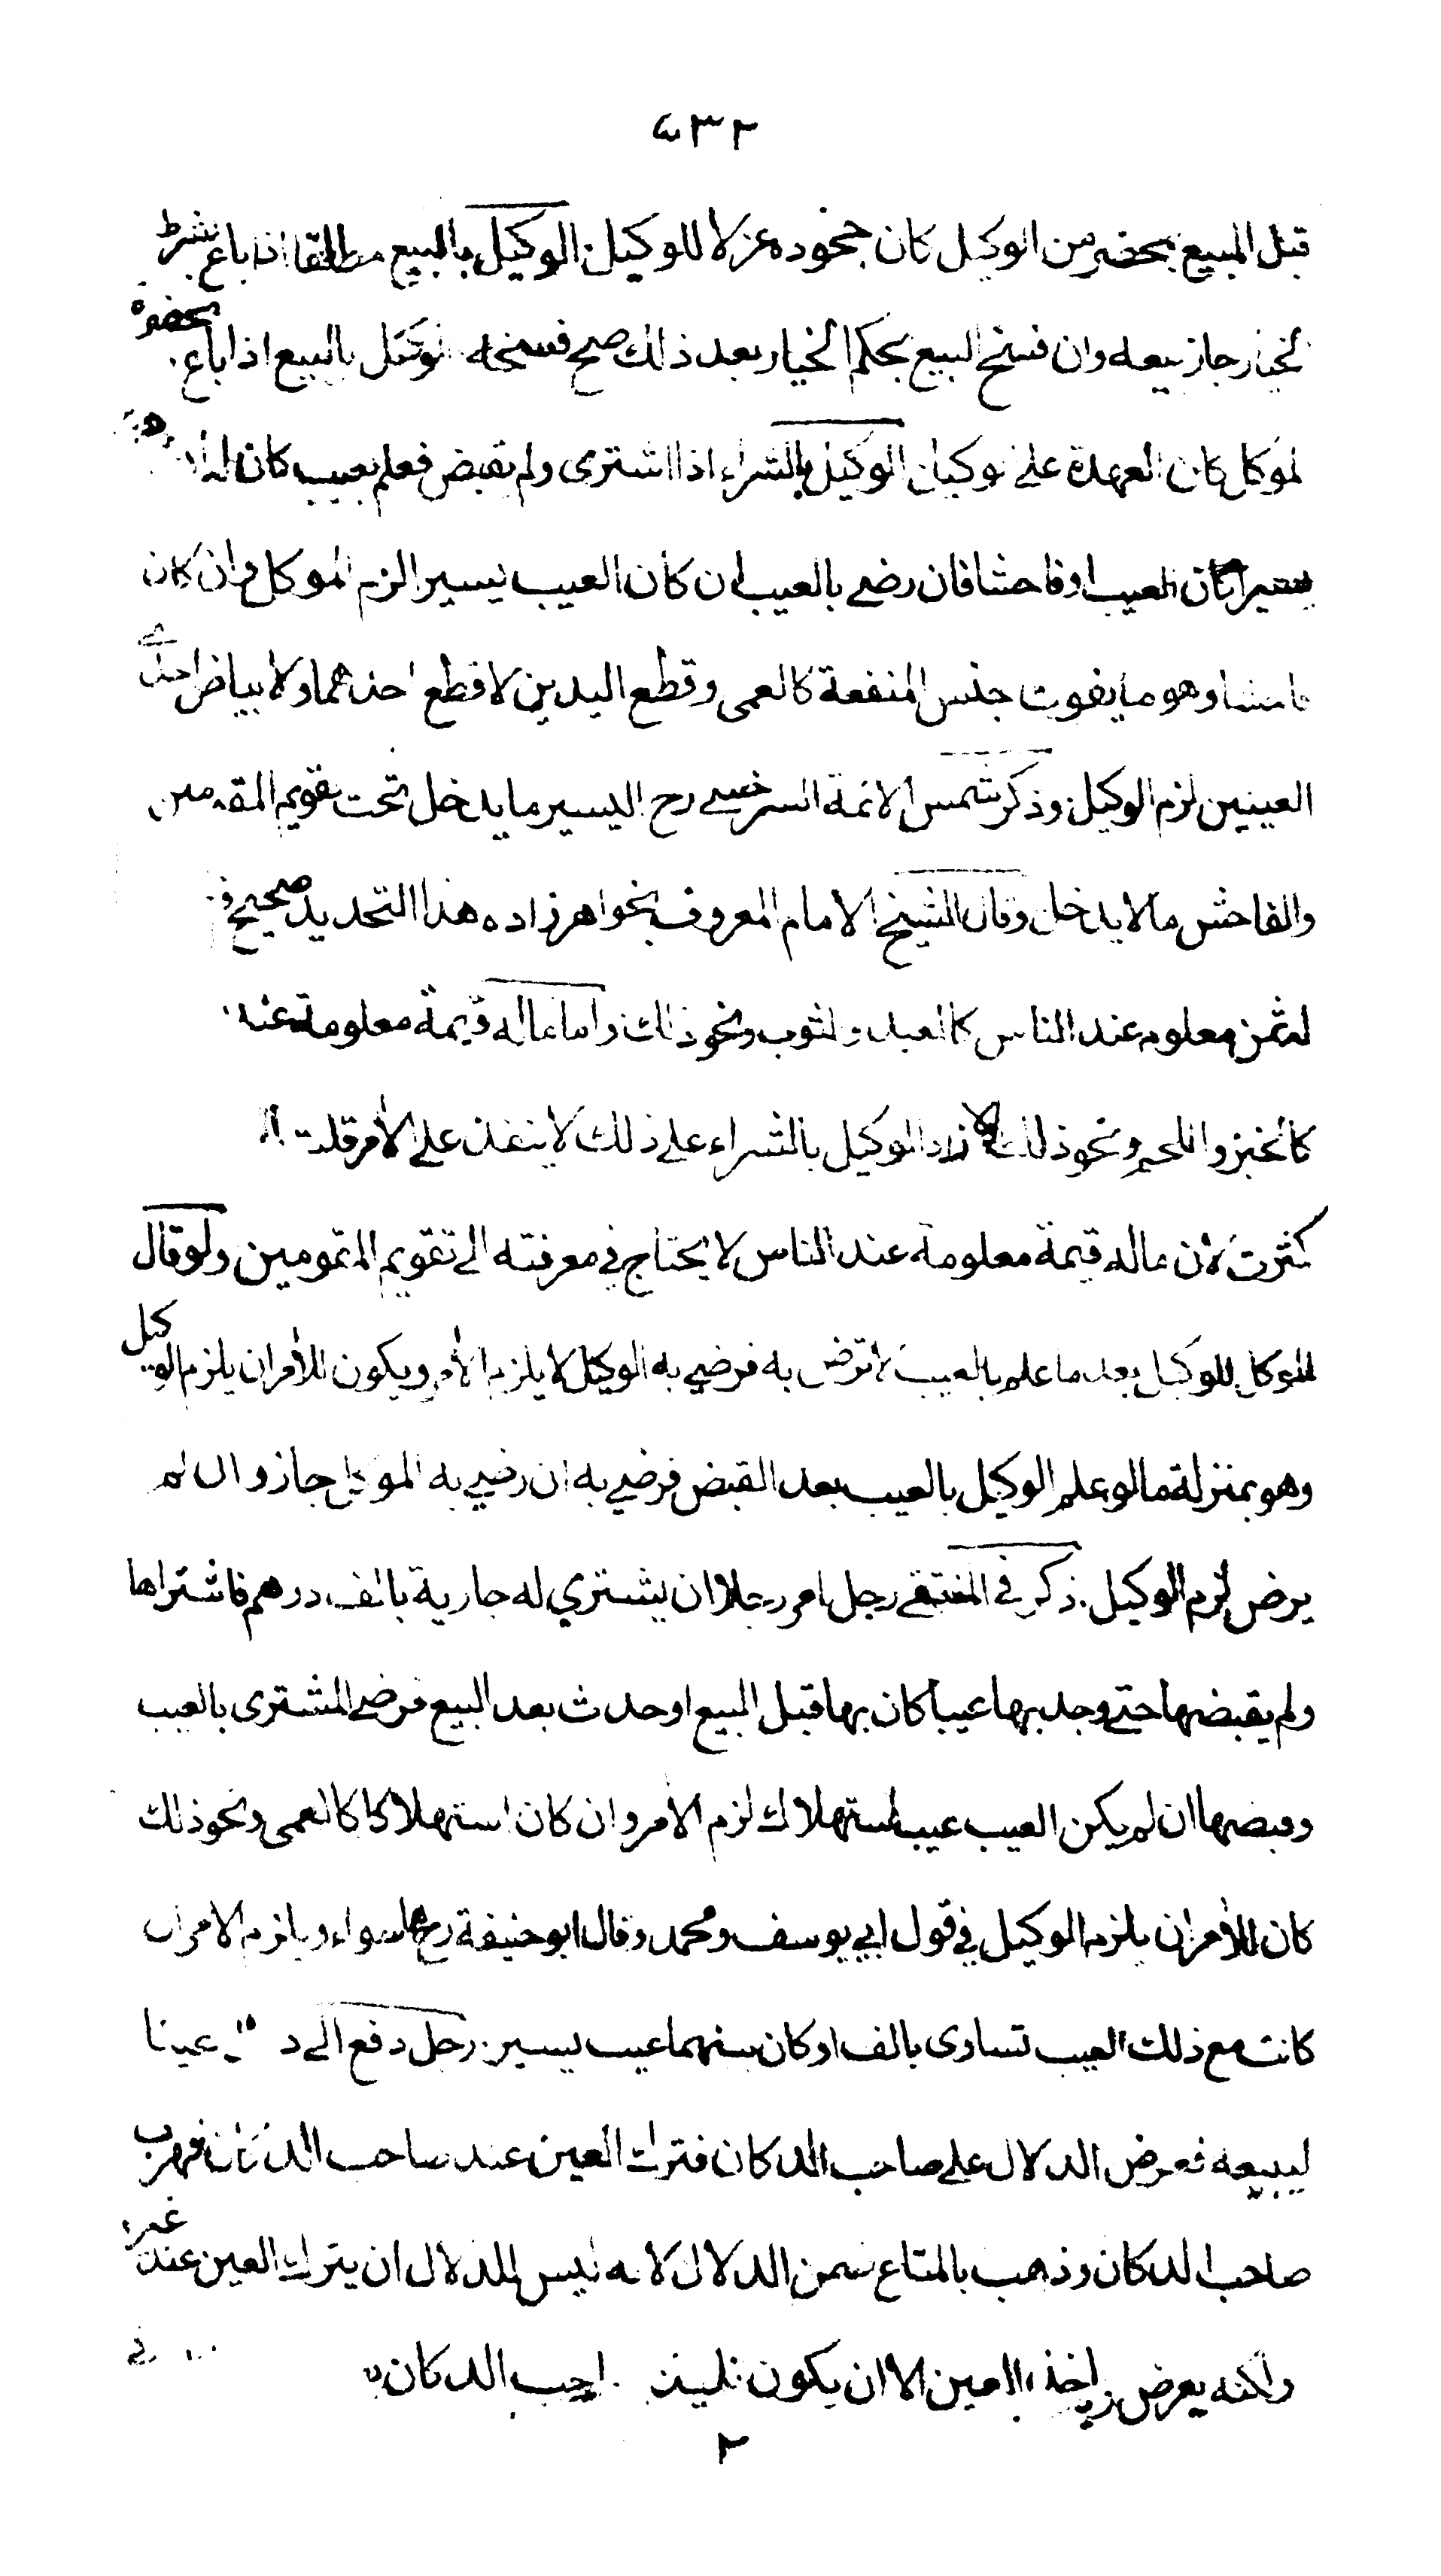 ٤٣٢
قبل البيع بمحضر من الوكيل كان جحوده عزلا للوكيل الوكيل بالبيع مطلقا اذا باع بشرط
الخيار جاز بيعه وان فسخ البيع بحكم الخيار بعد ذلك صح فسخه الوكيل بالبيع اذا باع بحضرة
الموكل كان العهدة على الوكيل الوكيل بالشراء اذا اشترى ولم يقبض فعلم بعيب كان له
يسيرا كان العيب او فاحشا فان رضي بالعيب ان كان العيب يسيرا لزم الموكل وان كان
فاحشا وهو ما يفوت جنس المنفعة كالعمى وقطع اليدين لا قطع احدهما ولا بياض احدى
العينين لزم الوكيل وذكر شمس الائمة السرخسي رح اليسير ما يدخل تحت تقويم المقومين
والفاحش ما لا يدخل وقال الشيخ الامام المعروف بخواهرزاده هذا التحديد صحيح
له ثمن معلوم عند الناس كالعبد والثوب ونحو ذلك واما ماله قيمة معلومة عند
كالخبز واللحم ونحو ذلك زاد الوكيل بالشراء على ذلك لا ينفذ على الآمر قلت
كثرت لان ماله قيمة معلومة عند الناس لا يحتاج في معرفته الى تقويم المقومين ولو قال
الموكل للوكيل بعد ما علم بالعيب لا ترض به فرضي به الوكيل لا يلزم الآمر ويكون للآمر ان يلزم الوكيل
وهو بمنزلة ما لو علم الوكيل بالعيب بعد القبض فرضي به ان رضي به الموكل جاز وان لم
يرض لزم الوكيل ذكر في المنتقى رجل امر رجلا ان يشتري له جارية بالف درهم فاشتراها
ولم يقبضها حتى وجد بها عيبا كان بها قبل البيع او حدث بعد البيع فرضي المشترى بالعيب
وقبضها ان لم يكن العيب عيب استهلاك لزم الآمر وان كان استهلاكا كالعمى ونحو ذلك
كان للآمر ان يلزم الوكيل في قول ابي يوسف ومحمد وقال ابو حنيفة رح هما سواء ويلزم الآمر ان
كانت مع ذلك العيب تساوى بالف او كان بينهما عيب يسير رجل دفع الى عينا
ليبيعه فعرض الدلال على صاحب الدكان فترك العين عند صاحب الدكان فهرب
صاحب الدكان وذهب بالمتاع ضمن الدلال لانه ليس للدلال ان يترك العين عند غيره
ولكنه يعرض وياخذ العين الا ان يكون صاحب الدكان
٢